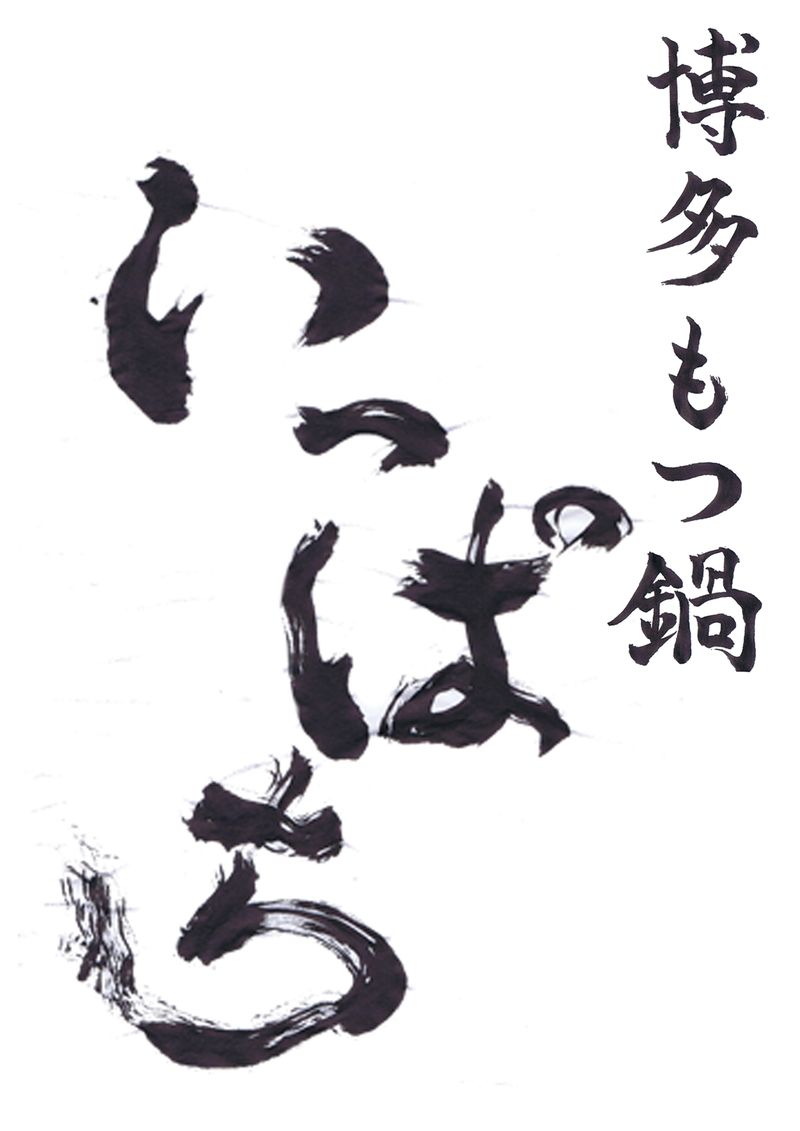 博多もつ鍋
いっぱち